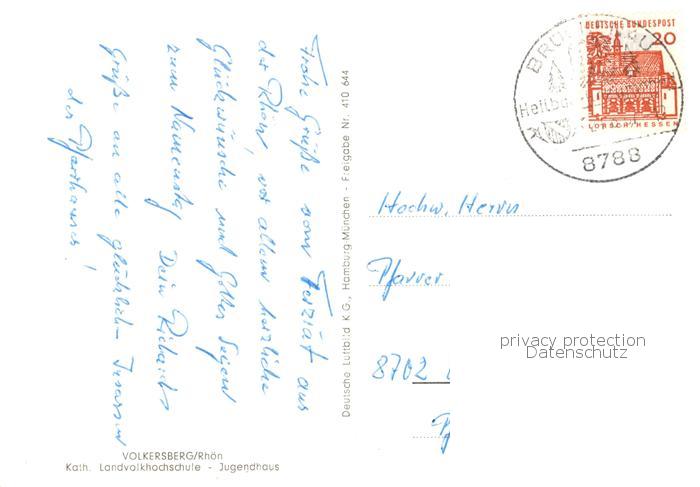 Frohe Grüße vom Ferziat aus
der Rhön, vor allem herzliche
Glückwünsche und Gottes Segen
zum Namenstag Dein Richard
Grüße an alle glücklich- Insassen
des Pfarrhauses!
VOLKERSBERG/Rhön
Kath. Landvolkhochschule - Jugendhaus
Deutsche Luftbild K G., Hamburg-München - Freigabe Nr. 410 644
DEUTSCHE BUNDESPOST
20
LORSCH/HESSEN
BRÜCKENAU
Heilbad
8788
Hochw. Herrn
Pfarrer
8702
privacy protection
Datenschutz